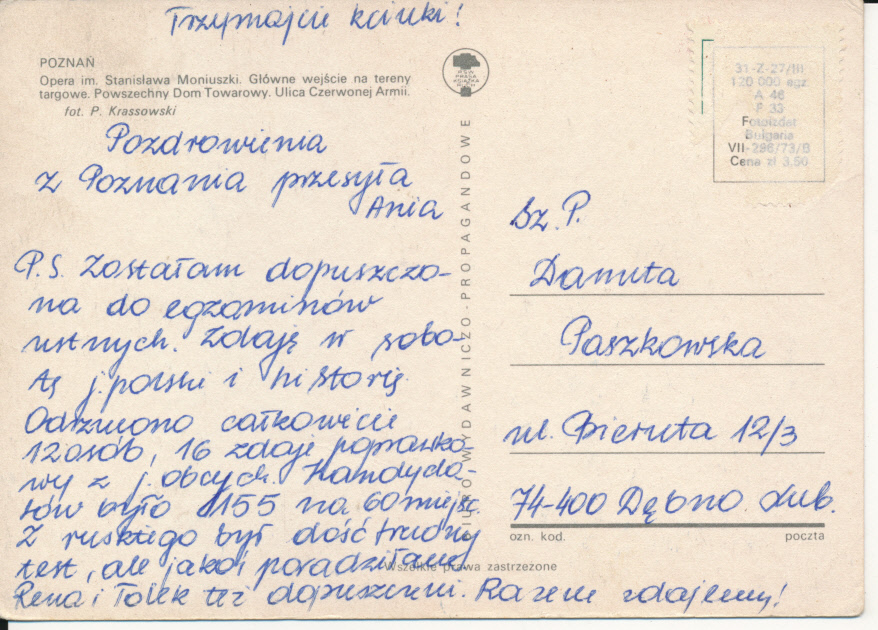 Trzymajcie kciuki!
POZNAŃ
Opera im. Stanisława Moniuszki. Główne wejście na tereny
targowe. Powszechny Dom Towarowy. Ulica Czerwonej Armii.
fot. P. Krassowski
Pozdrowienia
z Poznania przesyła
Ania
P.S. Zostałam dopuszczo-
na do egzaminów
ustnych. Zdaję w sobo-
tę j. polski i historię.
Odrzucono całkowicie
12 osób, 16 zdaje popraw
wy z j. obcych. Kandyda-
tów było 155 na 60 miejsc.
Z ruskiego był dość trudny
test, ale jakoś poradziłam
Rena i Tolek też dopuszczeni. Razem zdajemy!
BIURO WYDAWNICZO-PROPAGANDOWE
Wszelkie prawa zastrzeżone
RSW
PRASA
KSIĄŻKA
RUCH
31-Z-27/III
120 000 egz.
A 46
F 33
Fotoizdat
Bulgaria
VII-296/73/B
Cena zł 3,50
Sz. P.
Danuta
Paszkowska
ul. Bieruta 12/3
74-400 Dębno Lub.
ozn. kod.
poczta